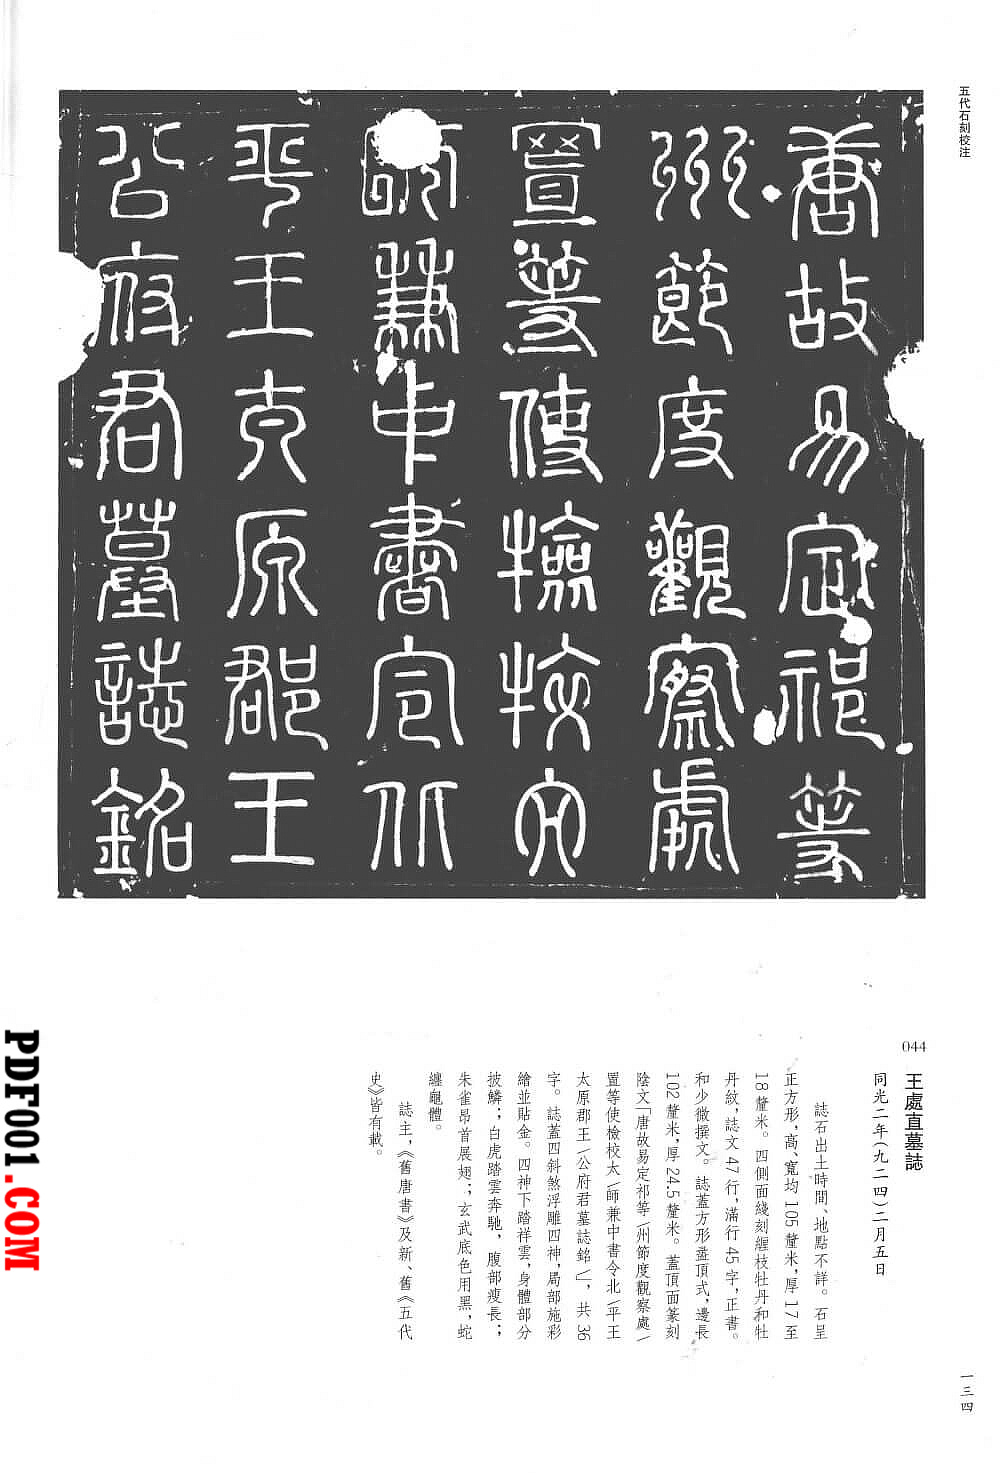 五代石刻校注
唐故易定祁等
州節度觀察處
置等使檢校太
師兼中書令北
平王太原郡王
公府君墓誌銘
044
王處直墓誌
同光二年(九二四)二月五日
誌石出土時間、地點不詳。石呈
正方形,高、寬均 105 釐米,厚 17 至
18 釐米。四側面綫刻纏枝牡丹和牡
丹紋,誌文 47 行,滿行 45 字,正書。
和少微撰文。誌蓋方形盝頂式,邊長
102 釐米,厚 24.5 釐米。蓋頂面篆刻
陰文「唐故易定祁等\州節度觀察處\
置等使檢校太\師兼中書令北\平王
太原郡王\公府君墓誌銘\」,共 36
字。誌蓋四斜煞浮雕四神,局部施彩
繪並貼金。四神下踏祥雲,身體部分
披鱗;白虎踏雲奔馳,腹部瘦長;
朱雀昂首展翅;玄武底色用黑,蛇
纏龜體。
誌主,《舊唐書》及新、舊《五代
史》皆有載。
一三四
PDF001.COM